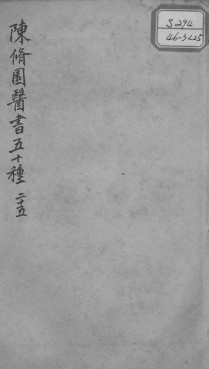 陳脩園醫書五十種 二十五
S294
46-3425